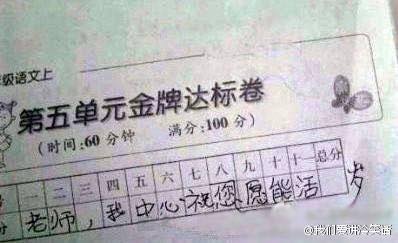 级语文上
第五单元金牌达标卷
(时间:60分钟 满分:100分)
一 二 三 四 五 六 七 八 九 十 十一 总分
分 老师，我中心祝您愿能活 岁
@我们爱讲冷笑话